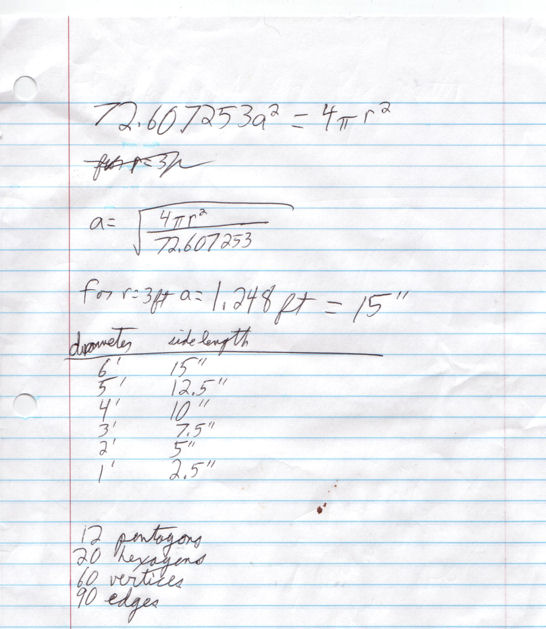 72.607253a² = 4πr²
for r=3
a= √(4πr² / 72.607253)
for r=3ft a= 1.248 ft = 15"
diameter side length
6' 15"
5' 12.5"
4' 10"
3' 7.5"
2' 5"
1' 2.5"
12 pentagons
20 hexagons
60 vertices
90 edges